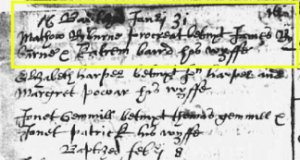 Baptized Janrij 31
Mathow Byburne procreat betwixt James By
burne & Katrein baird his wyffe
Elizabeth harper betwixt Jn harper and
Margret powar his wyffe
Jonet Gemmill betwixt thomas gemmill &
Jonet patrick his wyffe
Baptized febrij 8